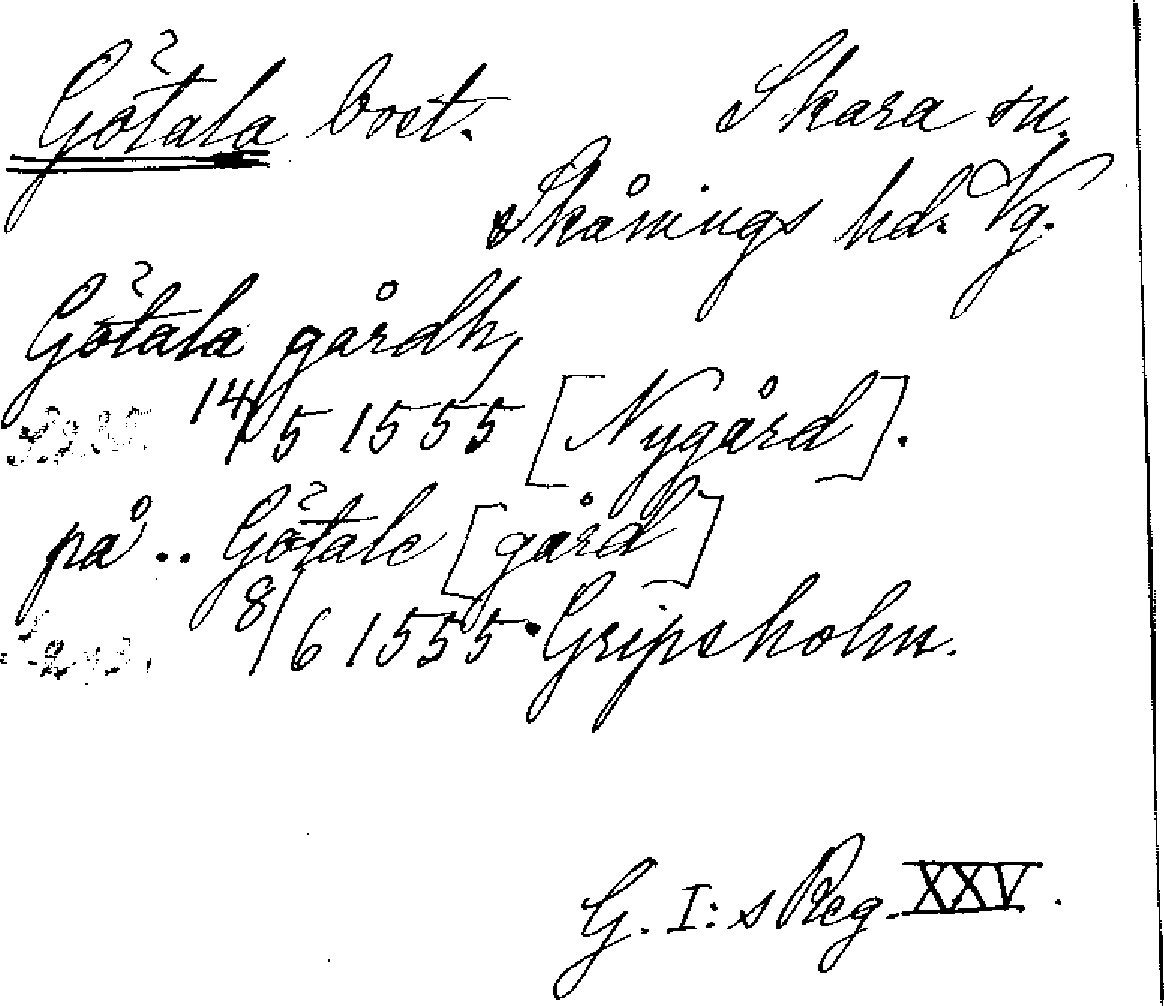 Götala bost. Skara sn.
Skånings hd. Vg.
Götala gårdh,
14/5 1555 [Nygård].
på .. Götale [gård]
8/6 1555. Gripsholm.
G. I:s Reg. XXV.